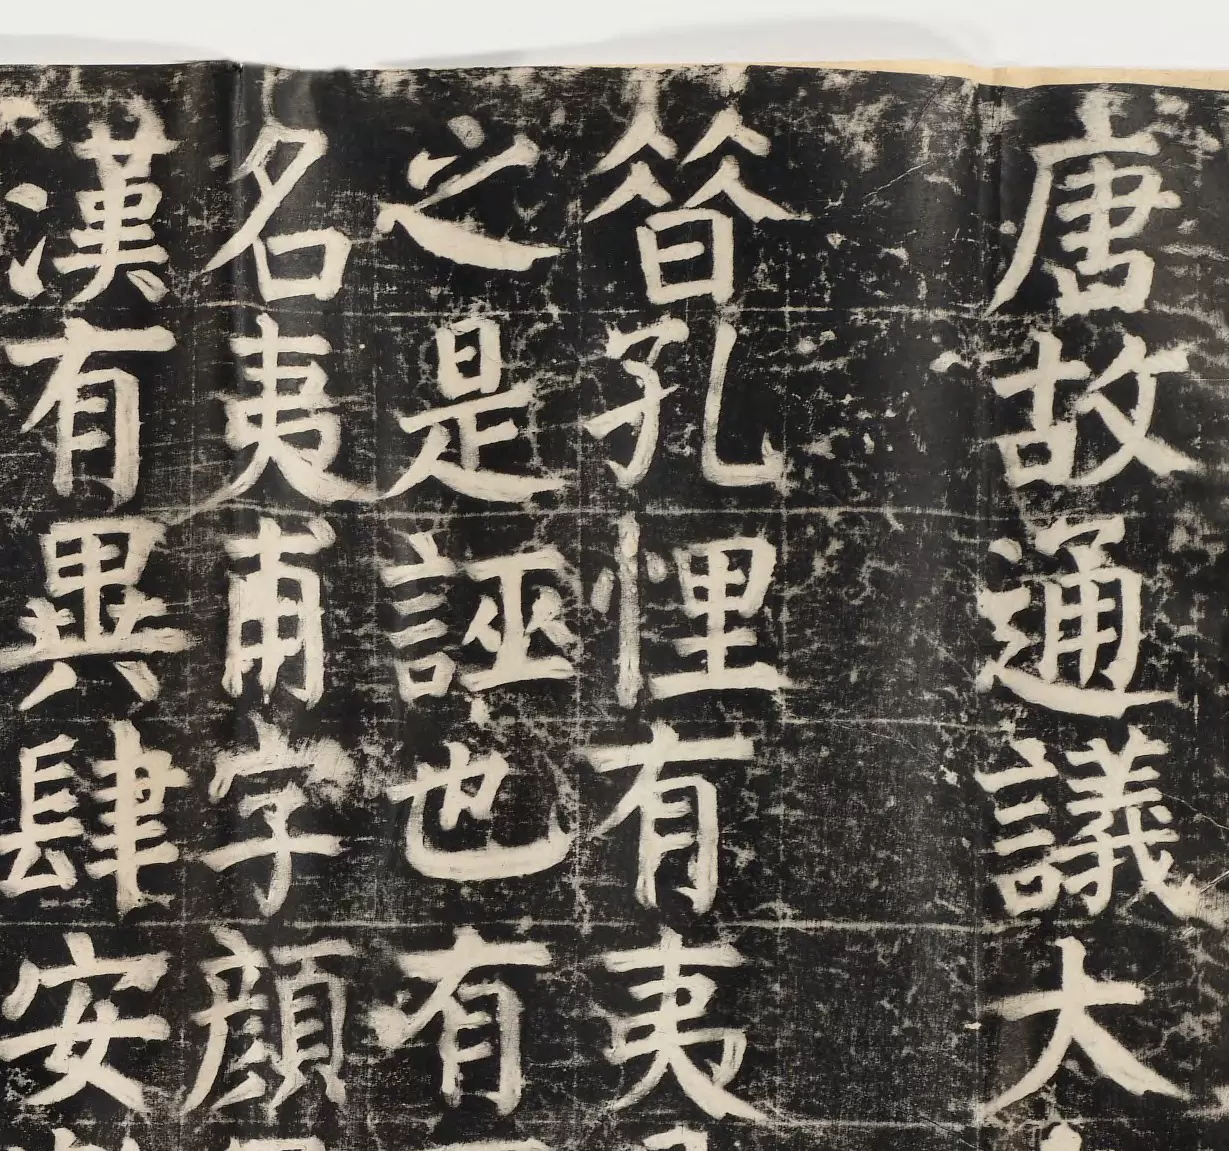 唐故通議大
昔孔悝有夷
之是誣也有
名夷甫字顏
漢有異肆安